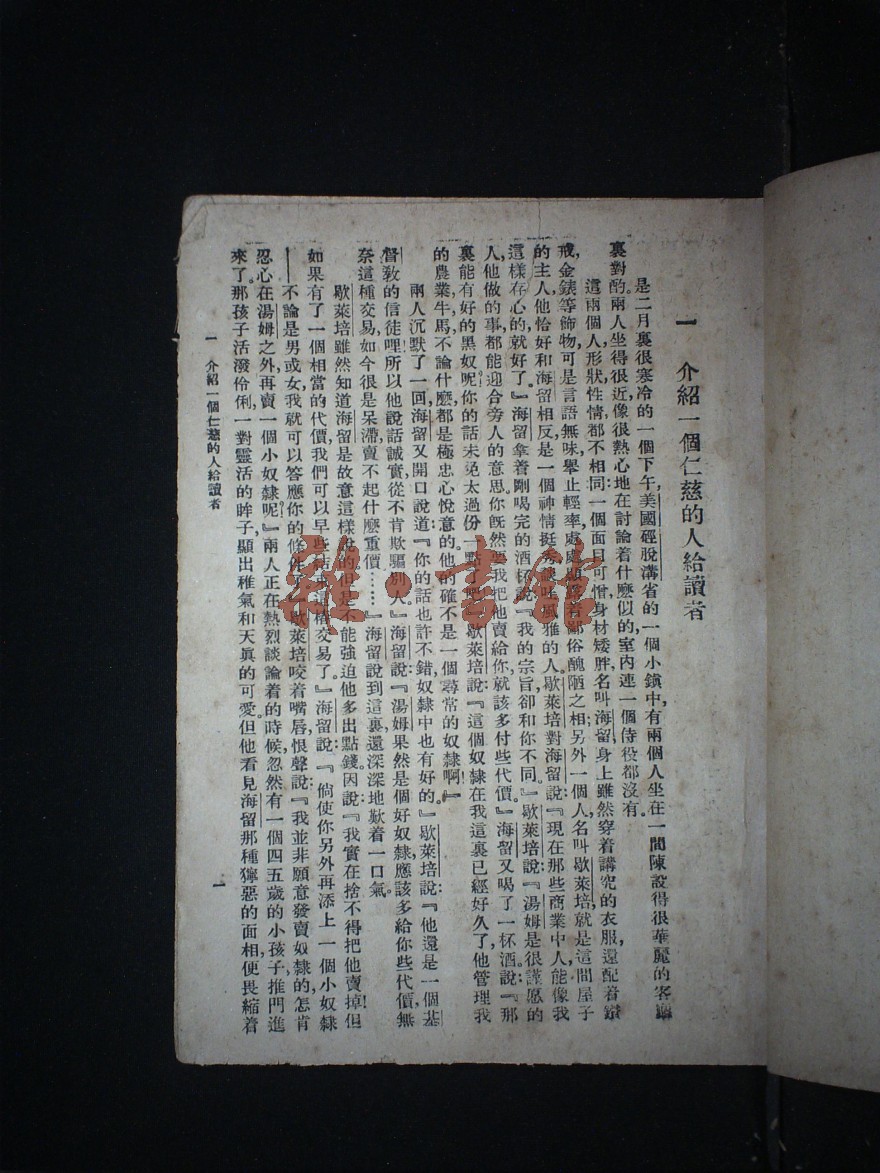 一　介紹一個仁慈的人給讀者
是二月裏很寒冷的一個下午，美國硜脫溝省的一個小鎮中，有兩個人坐在一間陳設得很華麗的客廳
裏對酌。兩人坐得很近，像很熱心地在討論着什麼似的。室內連一個侍役都沒有。
這兩個人形狀性情都不相同：一個面目可憎，身材矮胖，名叫海留，身上雖然穿着講究的衣服，還配着鑽
戒，金錶等飾物，可是言語無味，舉止輕率，處處顯露着鄙俗醜陋之相。另外一個人名叫歇萊培，就是這間屋子
的主人，他恰好和海留相反，是一個神情挺秀，風雅的人。歇萊培對海留說：『現在那些商業中人，能像我
這樣存心的就好了。』海留拿着剛喝完的酒杯說：『我的宗旨，卻和你不同。』歇萊培說：『湯姆是很謹愿的
人，他做的事，都能迎合旁人的意思。你旣然要我把他賣給你，就該多付些代價。』海留又喝了一杯酒，說：『那
裏能有好的黑奴呢？你的話未免太過份一點了。』歇萊培說：『這個奴隸在我這裏已經好久了，他管理我
的農業牛馬，不論什麼，都是極忠心悅意的。他的確不是一個尋常的奴隸啊！』
兩人沉默了一回，海留又開口說道：『你的話也許不錯，奴隸中也有好的。』歇萊培說：『他還是一個基
督敎的信徒哩！所以他說話誠實，從不肯欺騙別人。』海留說：『湯姆果然是個好奴隸，應該多給你些代價，無
奈這種交易，如今很是呆滯，賣不起什麼重價……』海留說到這裏，還深深地歎着一口氣。
歇萊培雖然知道海留是故意這樣說的，但是不能強迫他多出點錢。因說：『我實在捨不得把他賣掉！但
如果有了一個相當的代價，我們可以早些結束這樁交易了。』海留說：『倘使你另外再添上一個小奴隸
——不論是男或女，我就可以答應你的條件了。』歇萊培咬着嘴唇，恨聲說：『我並非願意發賣奴隸的，怎肯
忍心在湯姆之外，再賣一個小奴隸呢？』兩人正在熱烈談論着的時候，忽然有一個四五歲的小孩子，推門進
來了。那孩子活潑伶俐，一對靈活的眸子，顯出稚氣和天眞的可愛。但他看見海留那種獰惡的面相，便畏縮着
一　介紹一個仁慈的人給讀者
一
雜·書館